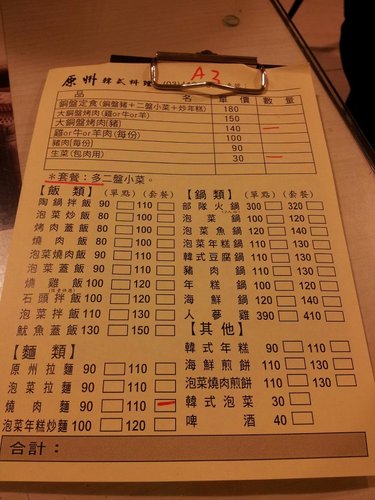 原州 韓式料理
A3
品 名 單價 數量
銅盤定食(銅盤豬+二盤小菜+炒年糕) 180
大銅盤烤肉(雞or牛or羊) 150
大銅盤烤肉(豬) 140
雞or牛or羊肉(每份)
豬肉(每份) 90
生菜(包肉用) 30
*套餐:多二盤小菜。
【飯 類】(單點)(套餐)
陶鍋拌飯 90 110
泡菜炒飯 80 100
烤肉蓋飯 80 100
燒肉飯 80 100
泡菜燒肉飯 90 110
泡菜蓋飯 90 110
燒雞飯 100 120
石頭拌飯 100 120
泡菜拌飯 110 130
魷魚蓋飯 130 150
【麵 類】
原州拉麵 90 110
泡菜拉麵 90 110
燒肉麵 90 110
泡菜年糕炒麵 100 120
【鍋 類】(單點)(套餐)
部隊火鍋 300 320
泡菜鍋 100 120
泡菜魚鍋 120 140
泡菜年糕鍋 110 130
韓式豆腐鍋 110 130
豬肉鍋 110 130
年糕鍋 100 120
海鮮鍋 120 140
人蔘雞 390 410
【其 他】
韓式年糕 90 110
海鮮煎餅 110 130
泡菜燒肉煎餅 110 130
韓式泡菜 30
啤酒 40
合計: